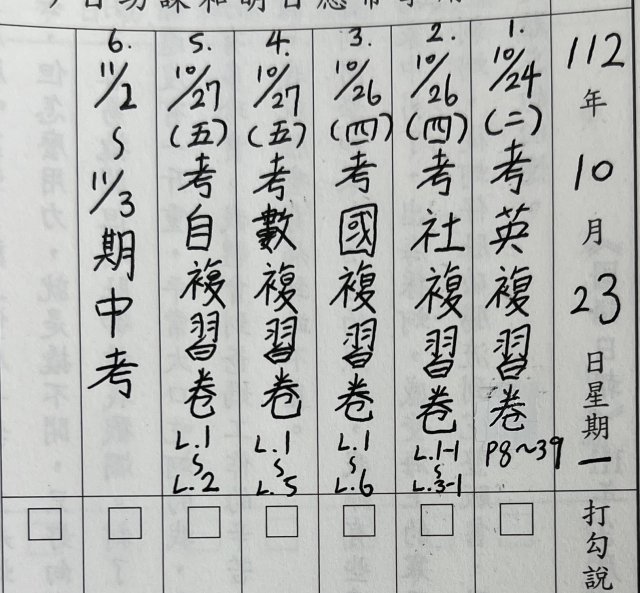 112年10月23日星期一
打勾說
1. 10/24(二)考英複習卷P8~39
2. 10/26(四)考社複習卷L.1-1~L.3-1
3. 10/26(四)考國複習卷L.1~L.6
4. 10/27(五)考數複習卷L.1~L.5
5. 10/27(五)考自複習卷L.1~L.2
6. 11/2~11/3期中考